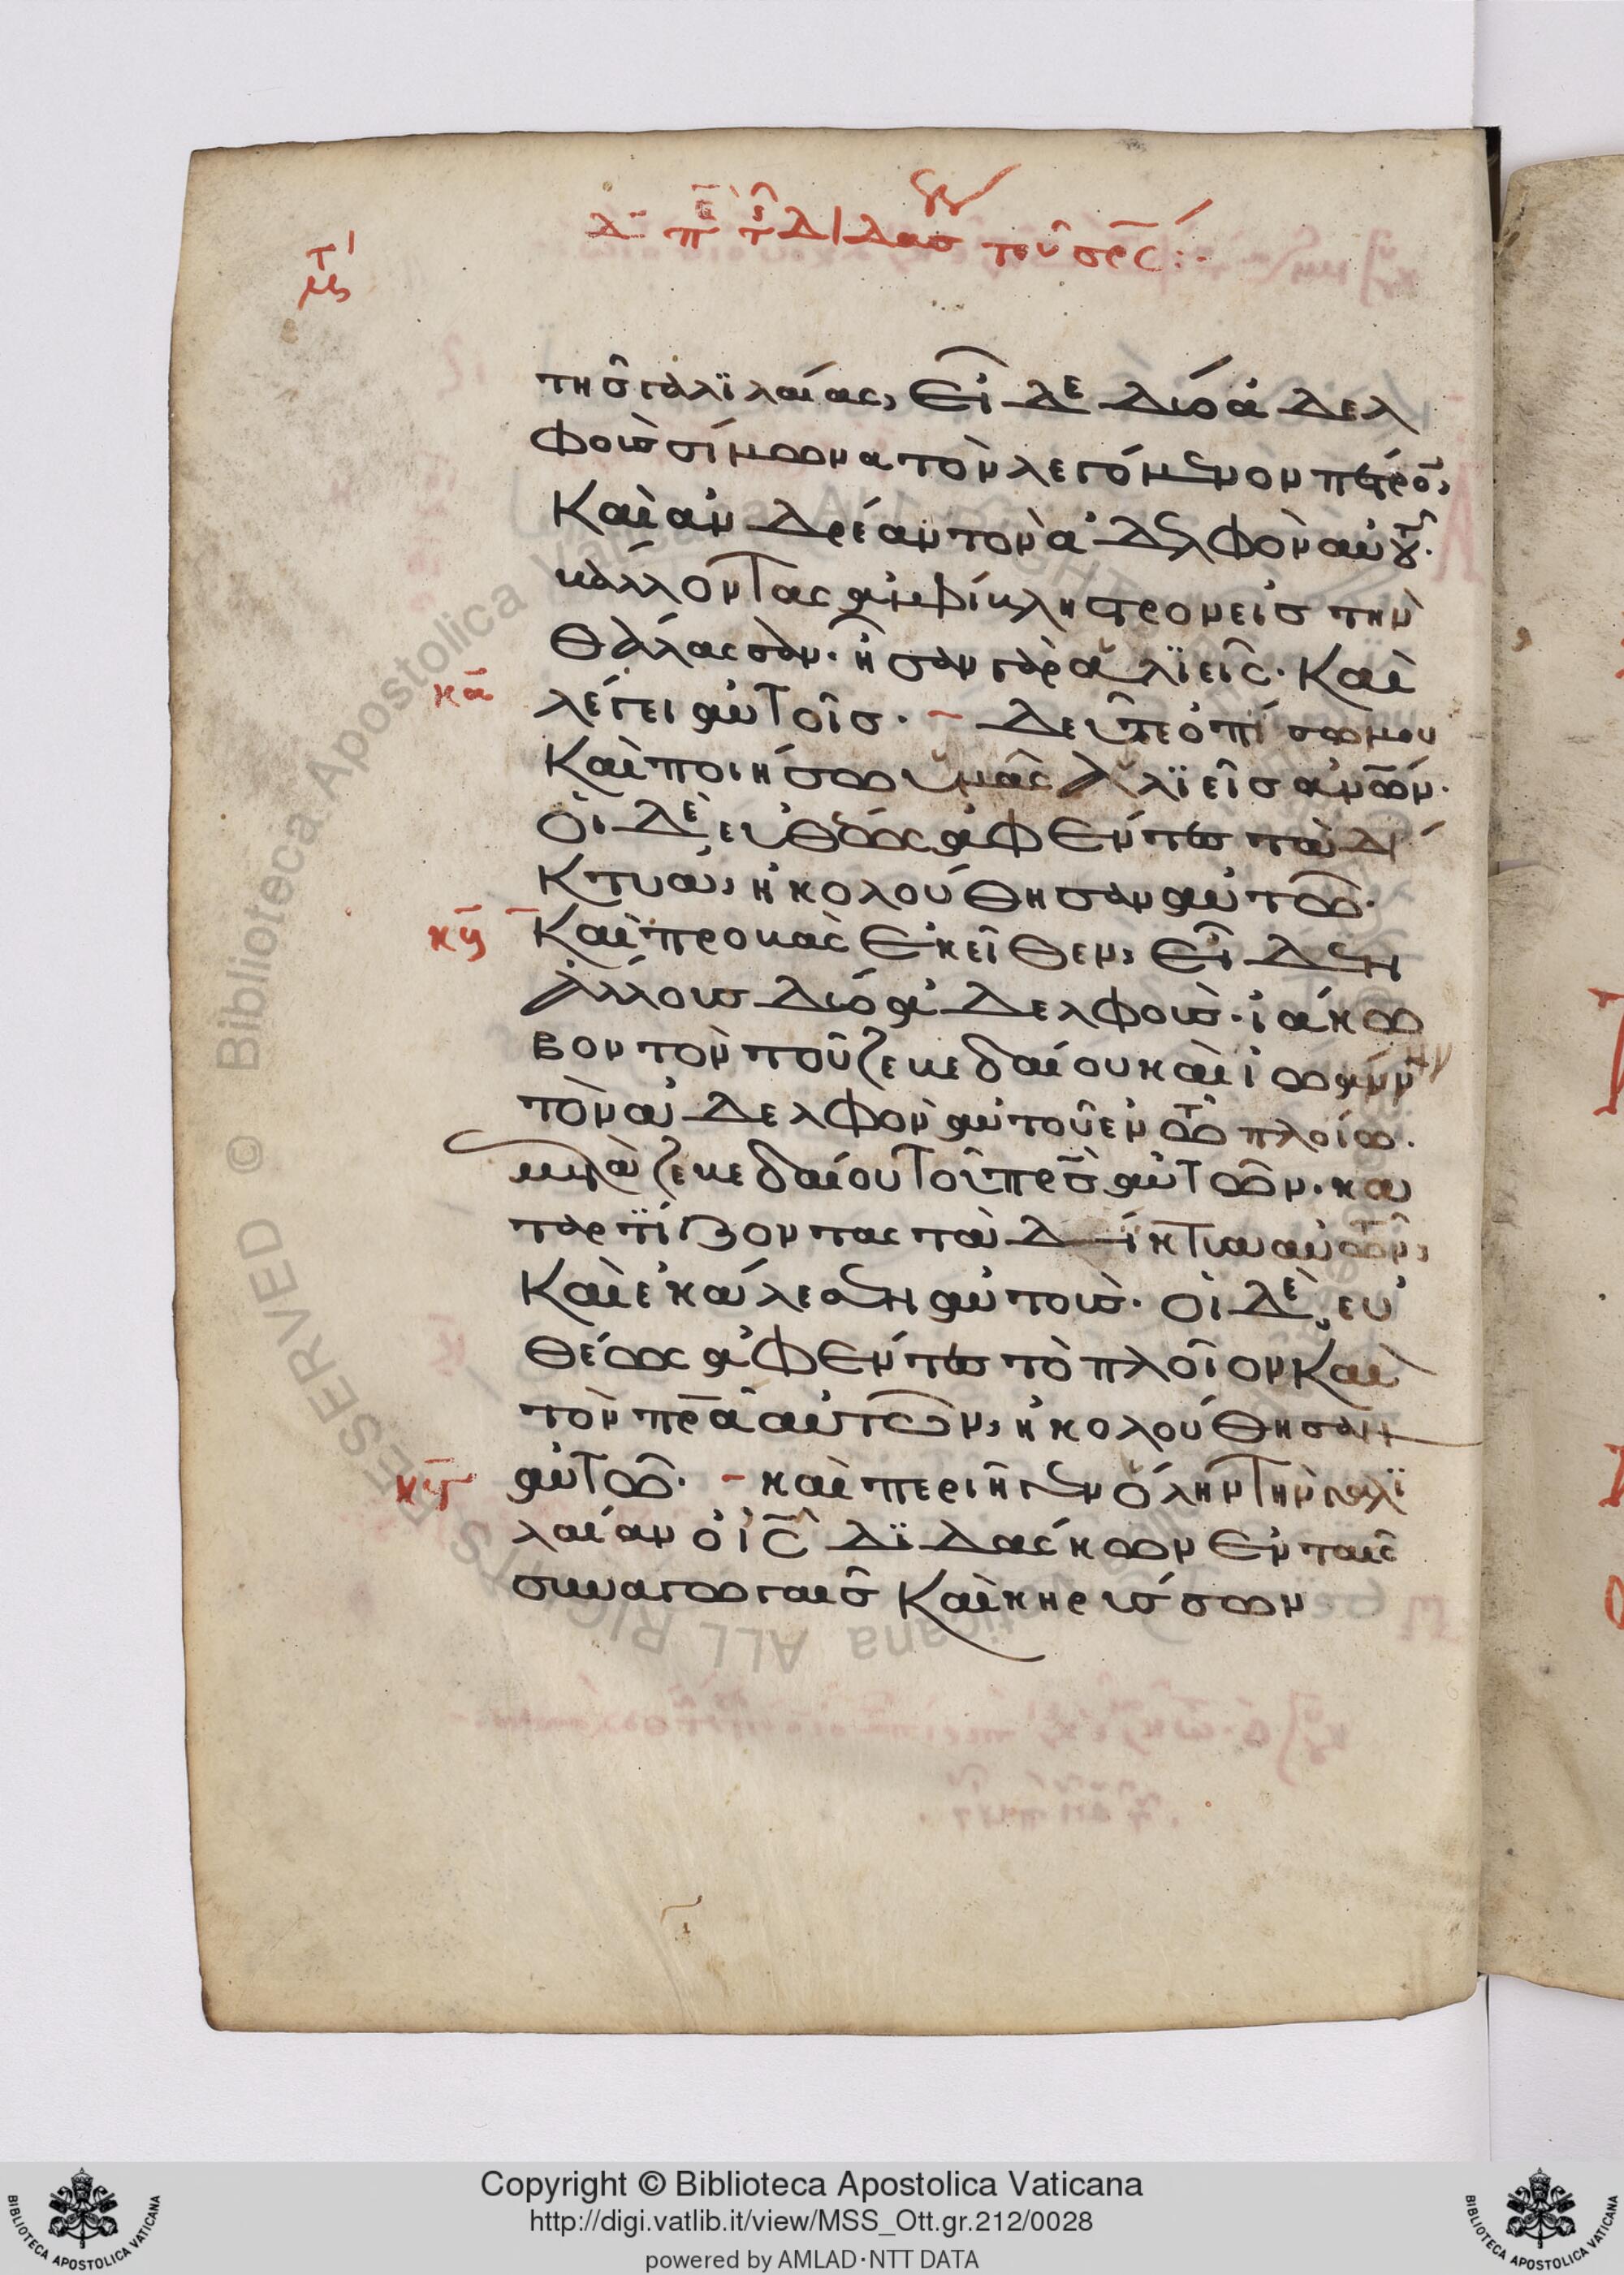 τῆς γαλϊλαίας, εἶδε δύο ἀδελ
φοὺς σίμωνα τὸν λεγόμενον πέτρον,
καὶ ἀνδρέαν τὸν ἀδελφὸν αὐτοῦ.
βάλλοντας ἀμφίβληστρον εἰς τὴν
θάλασσαν. ἦσαν γὰρ ἁλϊεῖς. καὶ
κα λέγει αὐτοῖς. δεῦτε ὀπίσω μου
καὶ ποιήσω ὑμᾶς ἁλϊεῖς ἀνῶν.
οἱ δὲ εὐθέως ἀφέντες τὰ δί
κτυα, ἠκολούθησαν αὐτῶ.
κβ καὶ προβὰς ἐκεῖθεν, εἶδεν
ἄλλους δύο ἀδελφοὺς. ἰάκω
βον τὸν τοῦ ζεβεδαίου καὶ ἰωάννην
τὸν ἀδελφὸν αὐτοῦ ἐν τῶ πλοίω.
μετὰ ζεβεδαίου τοῦ πρς αὐτῶν. κα
ταρτίζοντας τὰ δίκτυα αὐτῶν,
καὶ ἐκάλεσεν αὐτοὺς. οἱ δὲ εὐ
θέως ἀφέντες τὸ πλοῖον καὶ
τὸν πρα αὐτῶν, ἠκολούθησαν
κγ αὐτῶ. καὶ περιῆγεν ὅλην τὴν γαλϊ
λαίαν ὁ ις δϊδάσκων ἐν ταῖς
συναγωγαῖς καὶ κηρύσσων
Copyright © Biblioteca Apostolica Vaticana
http://digi.vatlib.it/view/MSS_Ott.gr.212/0028
powered by AMLAD·NTT DATA
BIBLIOTECA APOSTOLICA VATICANA
BIBLIOTECA APOSTOLICA VATICANA